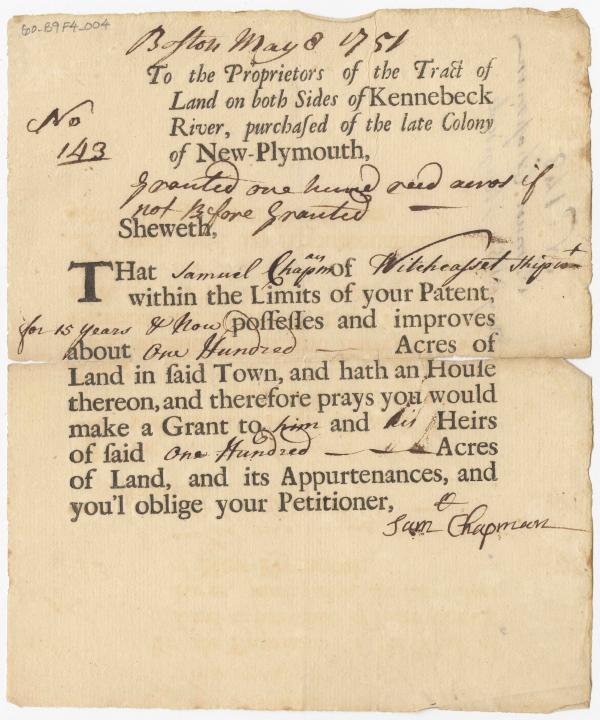 600-B9F4_004
Boston May 8 1751
To the Proprietors of the Tract of
Land on both Sides of Kennebeck
River, purchaſed of the late Colony
of New-Plymouth,
No
143
Granted one hundreed acros if
not Before Granted
Sheweth,
THat Samuel Chapman of Witchcasset
within the Limits of your Patent,
for 15 years & Now poſſeſſes and improves
about One Hundred Acres of
Land in ſaid Town, and hath an Houſe
thereon, and therefore prays you would
make a Grant to him and his Heirs
of ſaid One Hundred Acres
of Land, and its Appurtenances, and
you'l oblige your Petitioner,
Sam Chapman